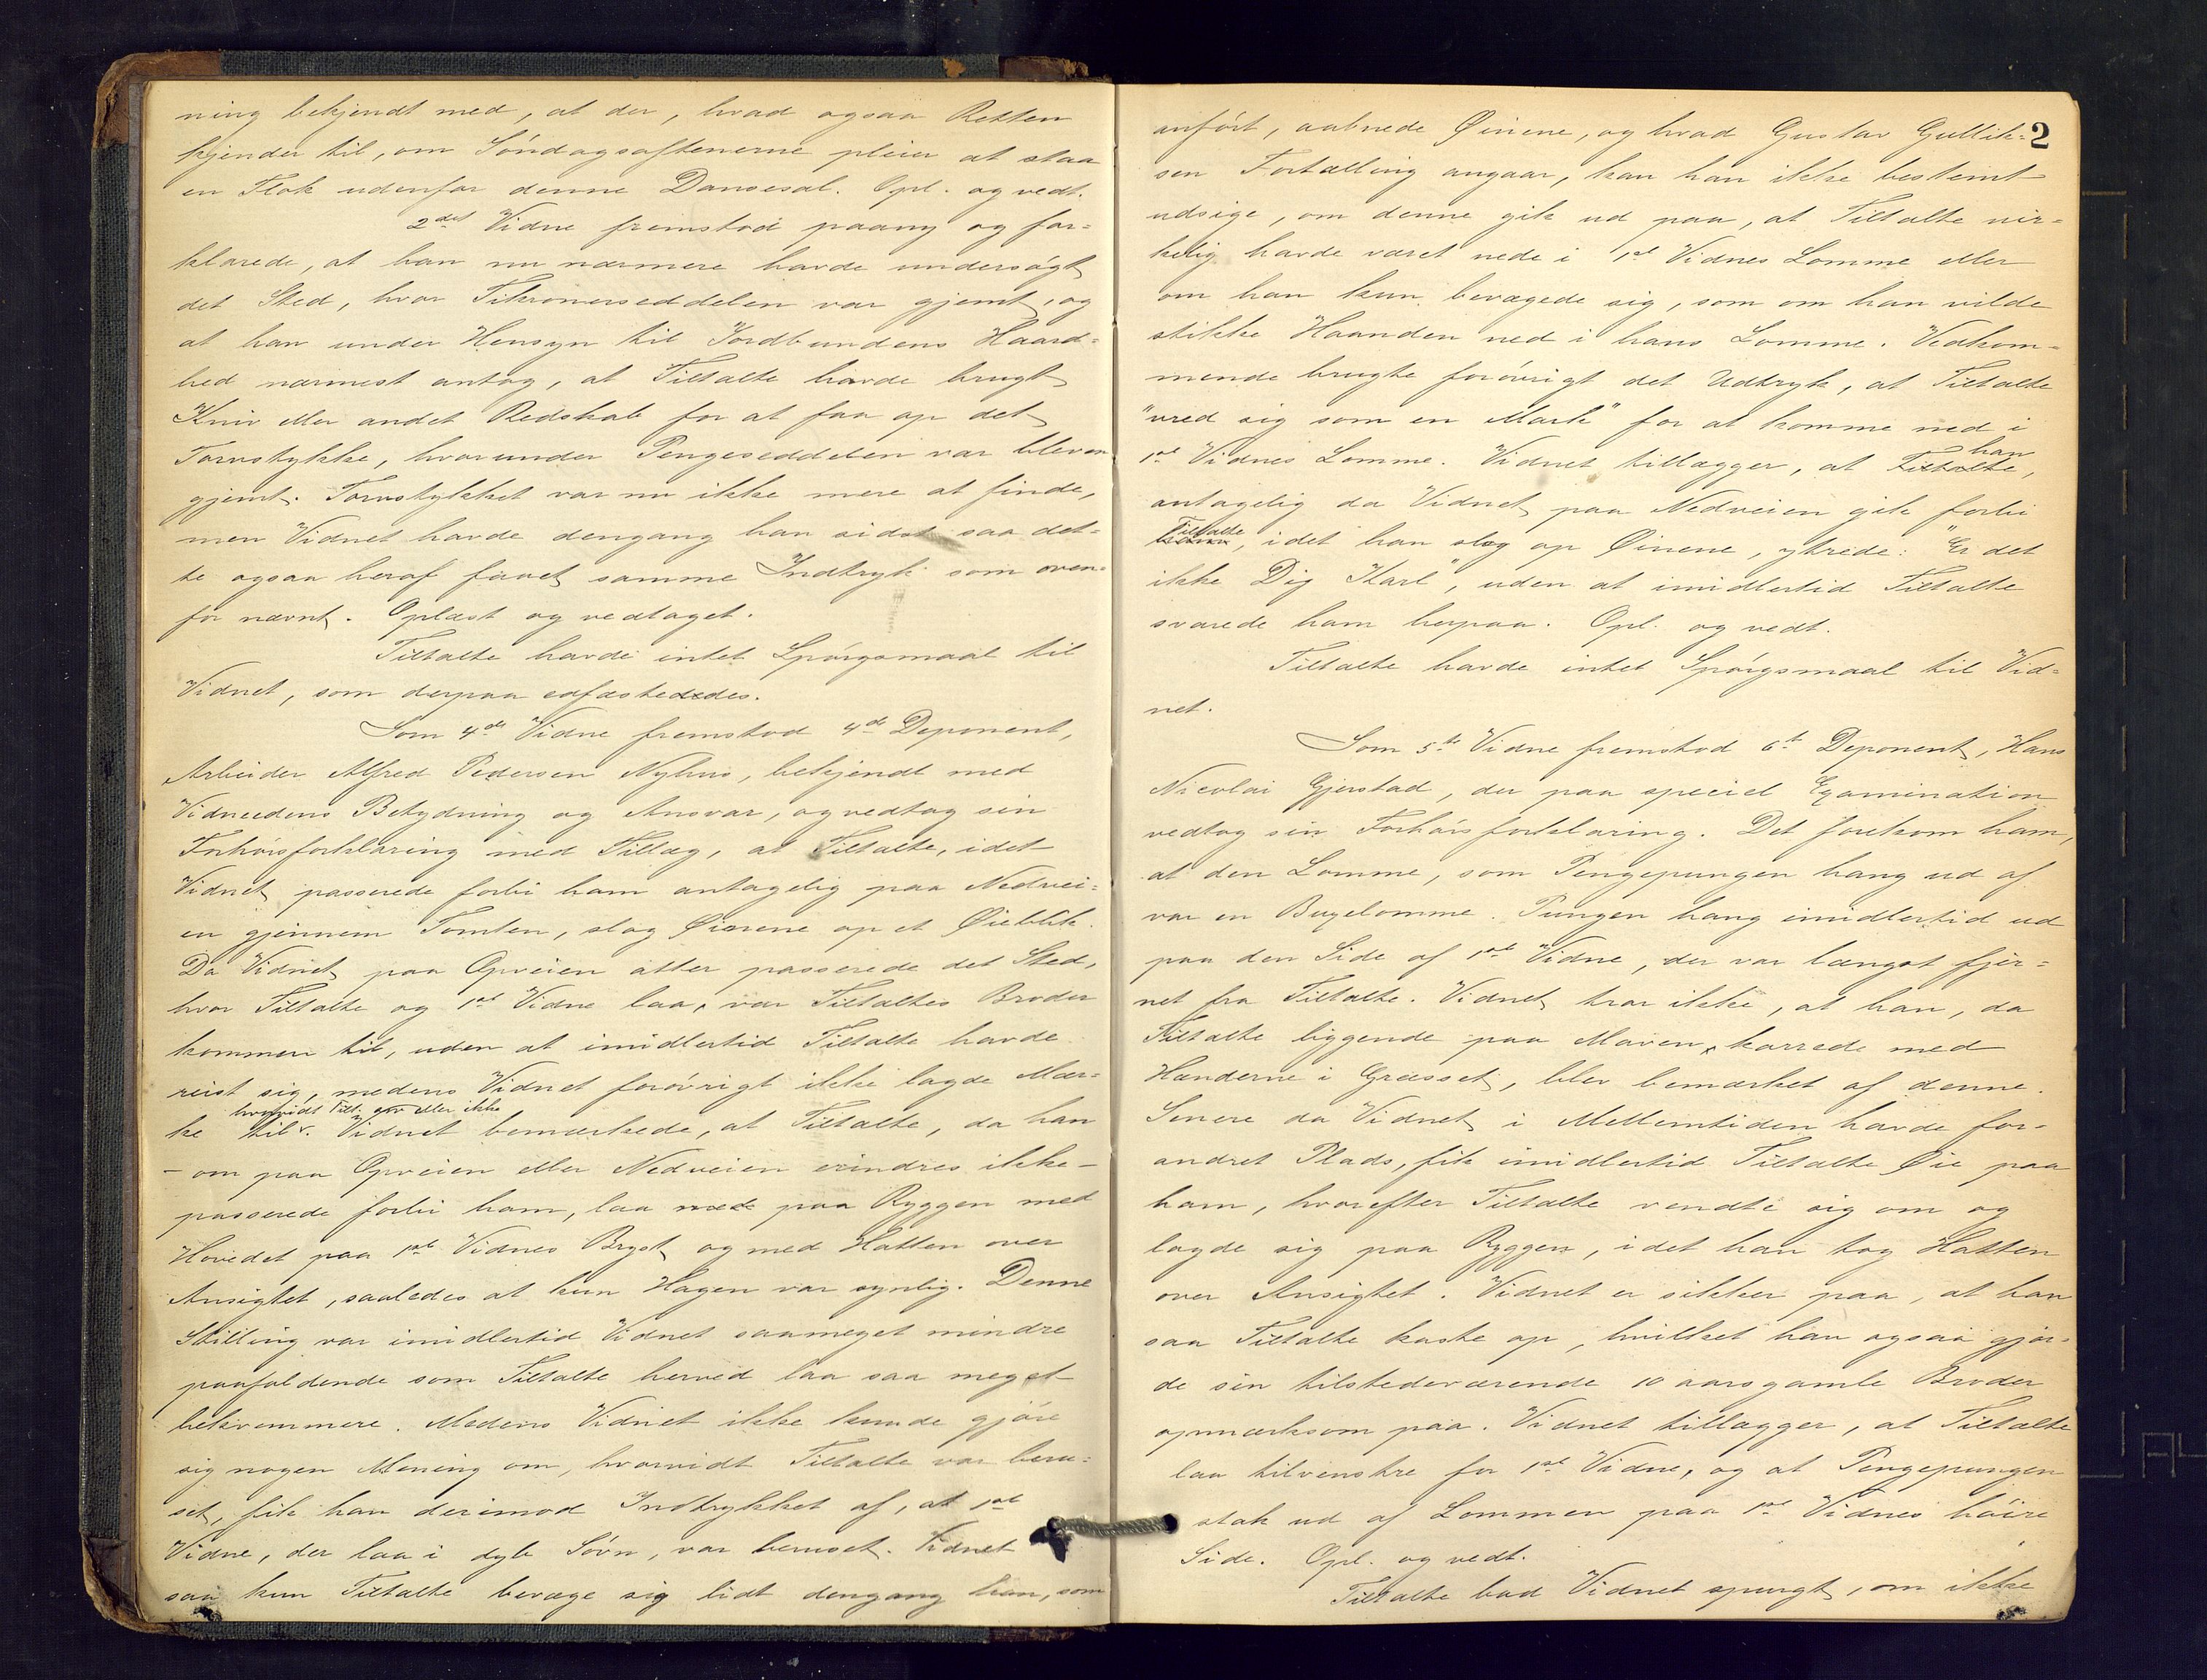 ning bekjendt med, at der, hvad ogsaa Retten
kjender til, om Søndagsaftenerne pleier at staa
en Flok udenfor denne Dansesal. Opl. og vedt.
2det Vidne fremstod paany og for-
klarede, at han nu nærmere havde undersøgt
det Sted, hvor Tikroneseddelen var gjemt, og
at han under Hensyn til Jordbundens Haard-
hed nærmest antog, at Tiltalte havde brugt
Kniv eller andet Redskab for at faa op det
Torvstykke, hvorunder Pengeseddelen var bleven
gjemt. Torvstykket var nu ikke mere at finde,
men Vidnet havde dengang han sidst saa det-
te ogsaa heraf faaet samme Indtryk som oven-
for nævnt. Oplæst og vedtaget.
Tiltalte havde intet Spørgsmaal til
Vidnet, som derpaa edfæstedes.
Som 4de Vidne fremstod 4de Deponent,
Arbeider Alfred Pedersen Nyhus, bekjendt med
Vidneedens Betydning og Ansvar, og vedtog sin
Forhørsforklaring med Tillæg, at Tiltalte, idet
Vidnet passerede forbi ham antagelig paa Nedvei-
en gjennem Tomten, slog Øinene op et Øieblik.
Da Vidnet paa Opveien atter passerede det Sted,
hvor Tiltalte og 1ste Vidne laa, var Tiltaltes Broder
kommen til, uden at imidlertid Tiltalte havde
reist sig, medens Vidnet forøvrigt ikke lagde Mær-
hvorvidt Tilt. gav eller ikke
ke til. Vidnet bemærkede, at Tiltalte, da han
- om paa Opveien eller Nedveien erindres ikke -
passerede forbi ham, laa med paa Ryggen med
Hovedet paa 1ste Vidnes Bryst og med Hatten over
Ansigtet, saaledes at kun Hagen var synlig. Denne
Stilling var imidlertid Vidnet saameget mindre
paafaldende som Tiltalte herved laa saa meget
bekvemmere. Medens Vidnet ikke kunde gjøre
sig nogen Mening om, hvorvidt Tiltalte var beru-
set, fik han derimod Indtrykket af, at 1ste
Vidne, der laa i dyb Søvn, var beruset. Vidnet
saa kun Tiltalte bevæge sig lidt dengang han, som
2
anført, aabnede Øinene, og hvad Gustav Gullik-
sen Fortælling angaar, kan han ikke bestemt
udsige, om denne gik ud paa, at Tiltalte vir-
kelig havde været nede i 1ste Vidnes Lomme eller
om han kun bevægede sig, som om han vilde
stikke Haanden ned i hans Lomme. Vedkom-
mende brugte forøvrigt det Udtryk, at Tiltalte
"vred sig som en Mark" for at komme ned i
han
1ste Vidnes Lomme. Vidnet tillægger, at Tiltalte,
antagelig da Vidnet paa Nedveien gik forbi
Tiltalte
, idet han slog op Øinene, ytrede: "Er det
ikke Dig Karl", uden at imidlertid Tiltalte
svarede ham herpaa. Opl. og vedt.
Tiltalte havde intet Spørgsmaal til Vid-
net.
Som 5te Vidne fremstod 6te Deponent, Hans
Nicolai Gjerstad, der paa speciel Examination
vedtog sin Forhørsforklaring. Det forekom ham,
at den Lomme, som Pengepungen hang ud af
var en Buxelomme. Pungen hang imidlertid ud
paa den Side af 1ste Vidne, der var længst fjer-
net fra Tiltalte. Vidnet tror ikke, at han, da
Tiltalte liggende paa Maven, karrede med
Hænderne i Græsset, blev bemærket af denne.
Senere da Vidnet i Mellemtiden havde for-
andret Plads, fik imidlertid Tiltalte Øie paa
ham, hvorefter Tiltalte vendte sig om og
lagde sig paa Ryggen, idet han tog Hatten
over Ansigtet. Vidnet er sikker paa, at han
saa Tiltalte kaste op, hvilket han ogsaa gjor-
de sin tilstedeværende 10 aarsgamle Broder
opmærksom paa. Vidnet tillægger, at Tiltalte
laa tilvenstre for 1ste Vidne, og at Pengepungen
stak ud af Lommen paa 1ste Vidnes høire
Side. Opl. og vedt.
Tiltalte bad Vidnet spurgt, om ikke